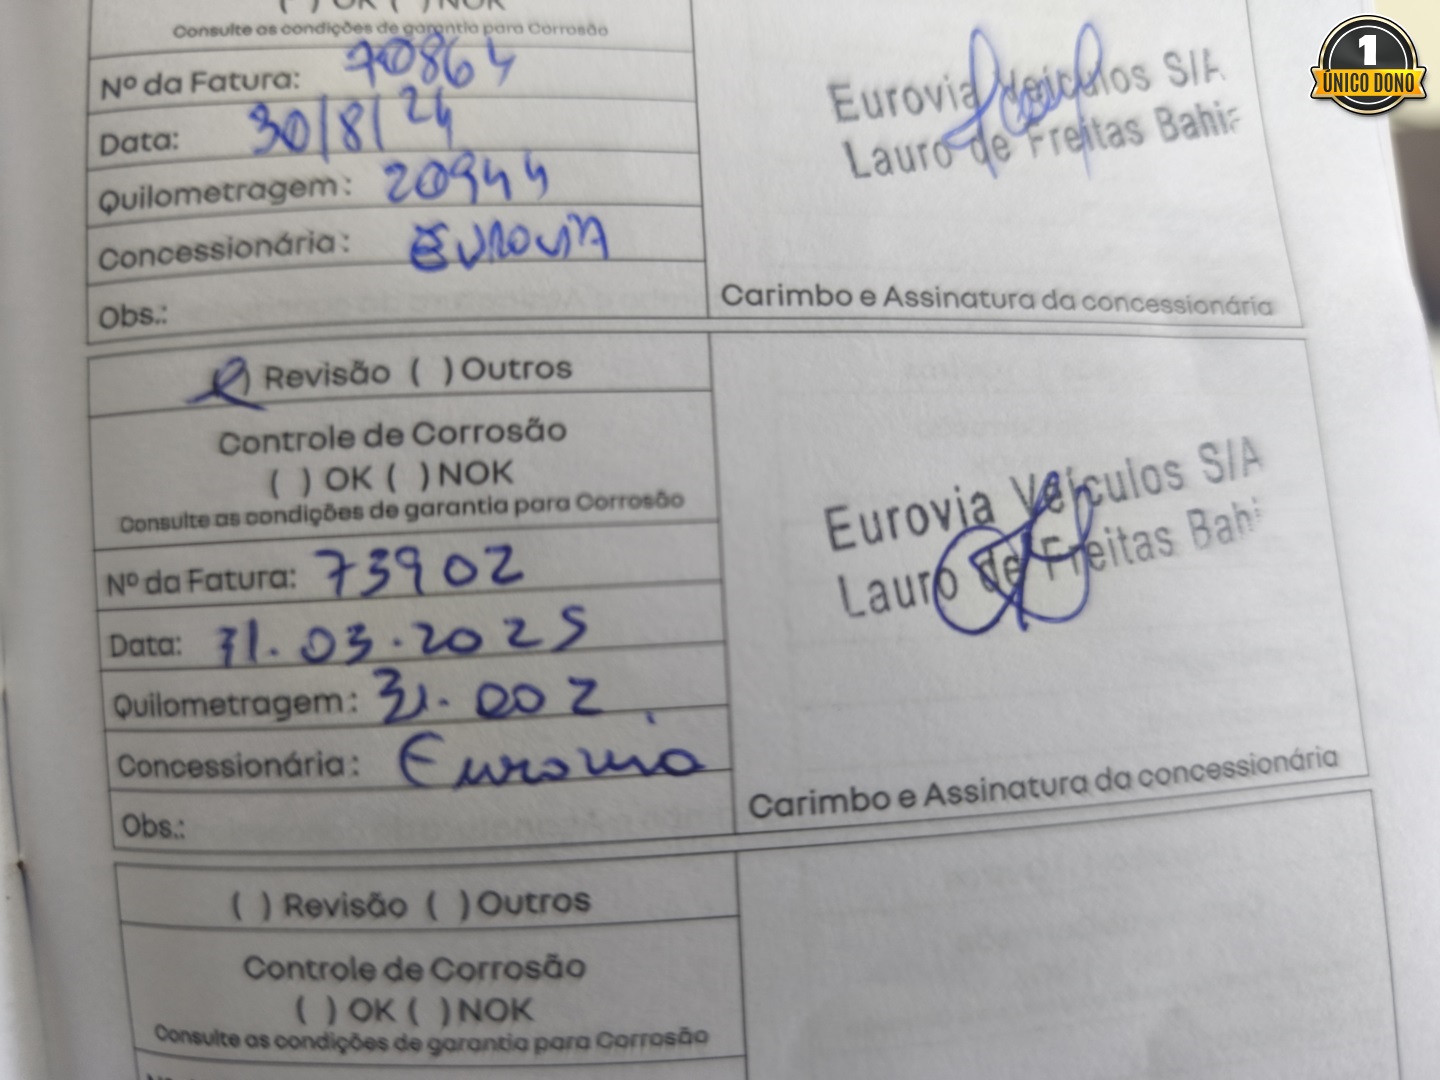 ( ) OK ( ) NOK
Consulte as condições de garantia para Corrosão
Nº da Fatura: 70864
Data: 30/8/24
Quilometragem: 20944
Concessionária: EUROVIA
Obs.:
Eurovia Veículos S/A
Lauro de Freitas Bahia
Carimbo e Assinatura da concessionária
( ) Revisão ( ) Outros
Controle de Corrosão
( ) OK ( ) NOK
Consulte as condições de garantia para Corrosão
Nº da Fatura: 73902
Data: 31.03.2025
Quilometragem: 31.002
Concessionária: Eurovia
Obs.:
Eurovia Veículos S/A
Lauro de Freitas Bahi
Carimbo e Assinatura da concessionária
( ) Revisão ( ) Outros
Controle de Corrosão
( ) OK ( ) NOK
Consulte as condições de garantia para Corrosão
1
ÚNICO DONO